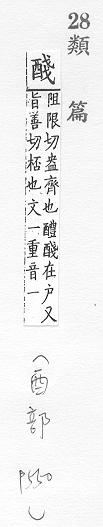 28
類
篇
醆
阻限切盎齊也醴醆在户又
旨善切桮也文一重音一
(酉部
P550)